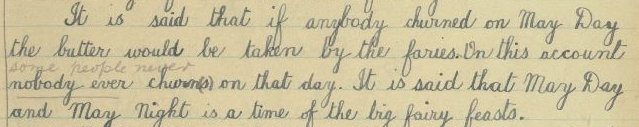 It is said that if anybody churned on May Day
the butter would be taken by the faries. On this account
some people never
nobody ever churns on that day. It is said that May Day
and May Night is a time of the big fairy feasts.